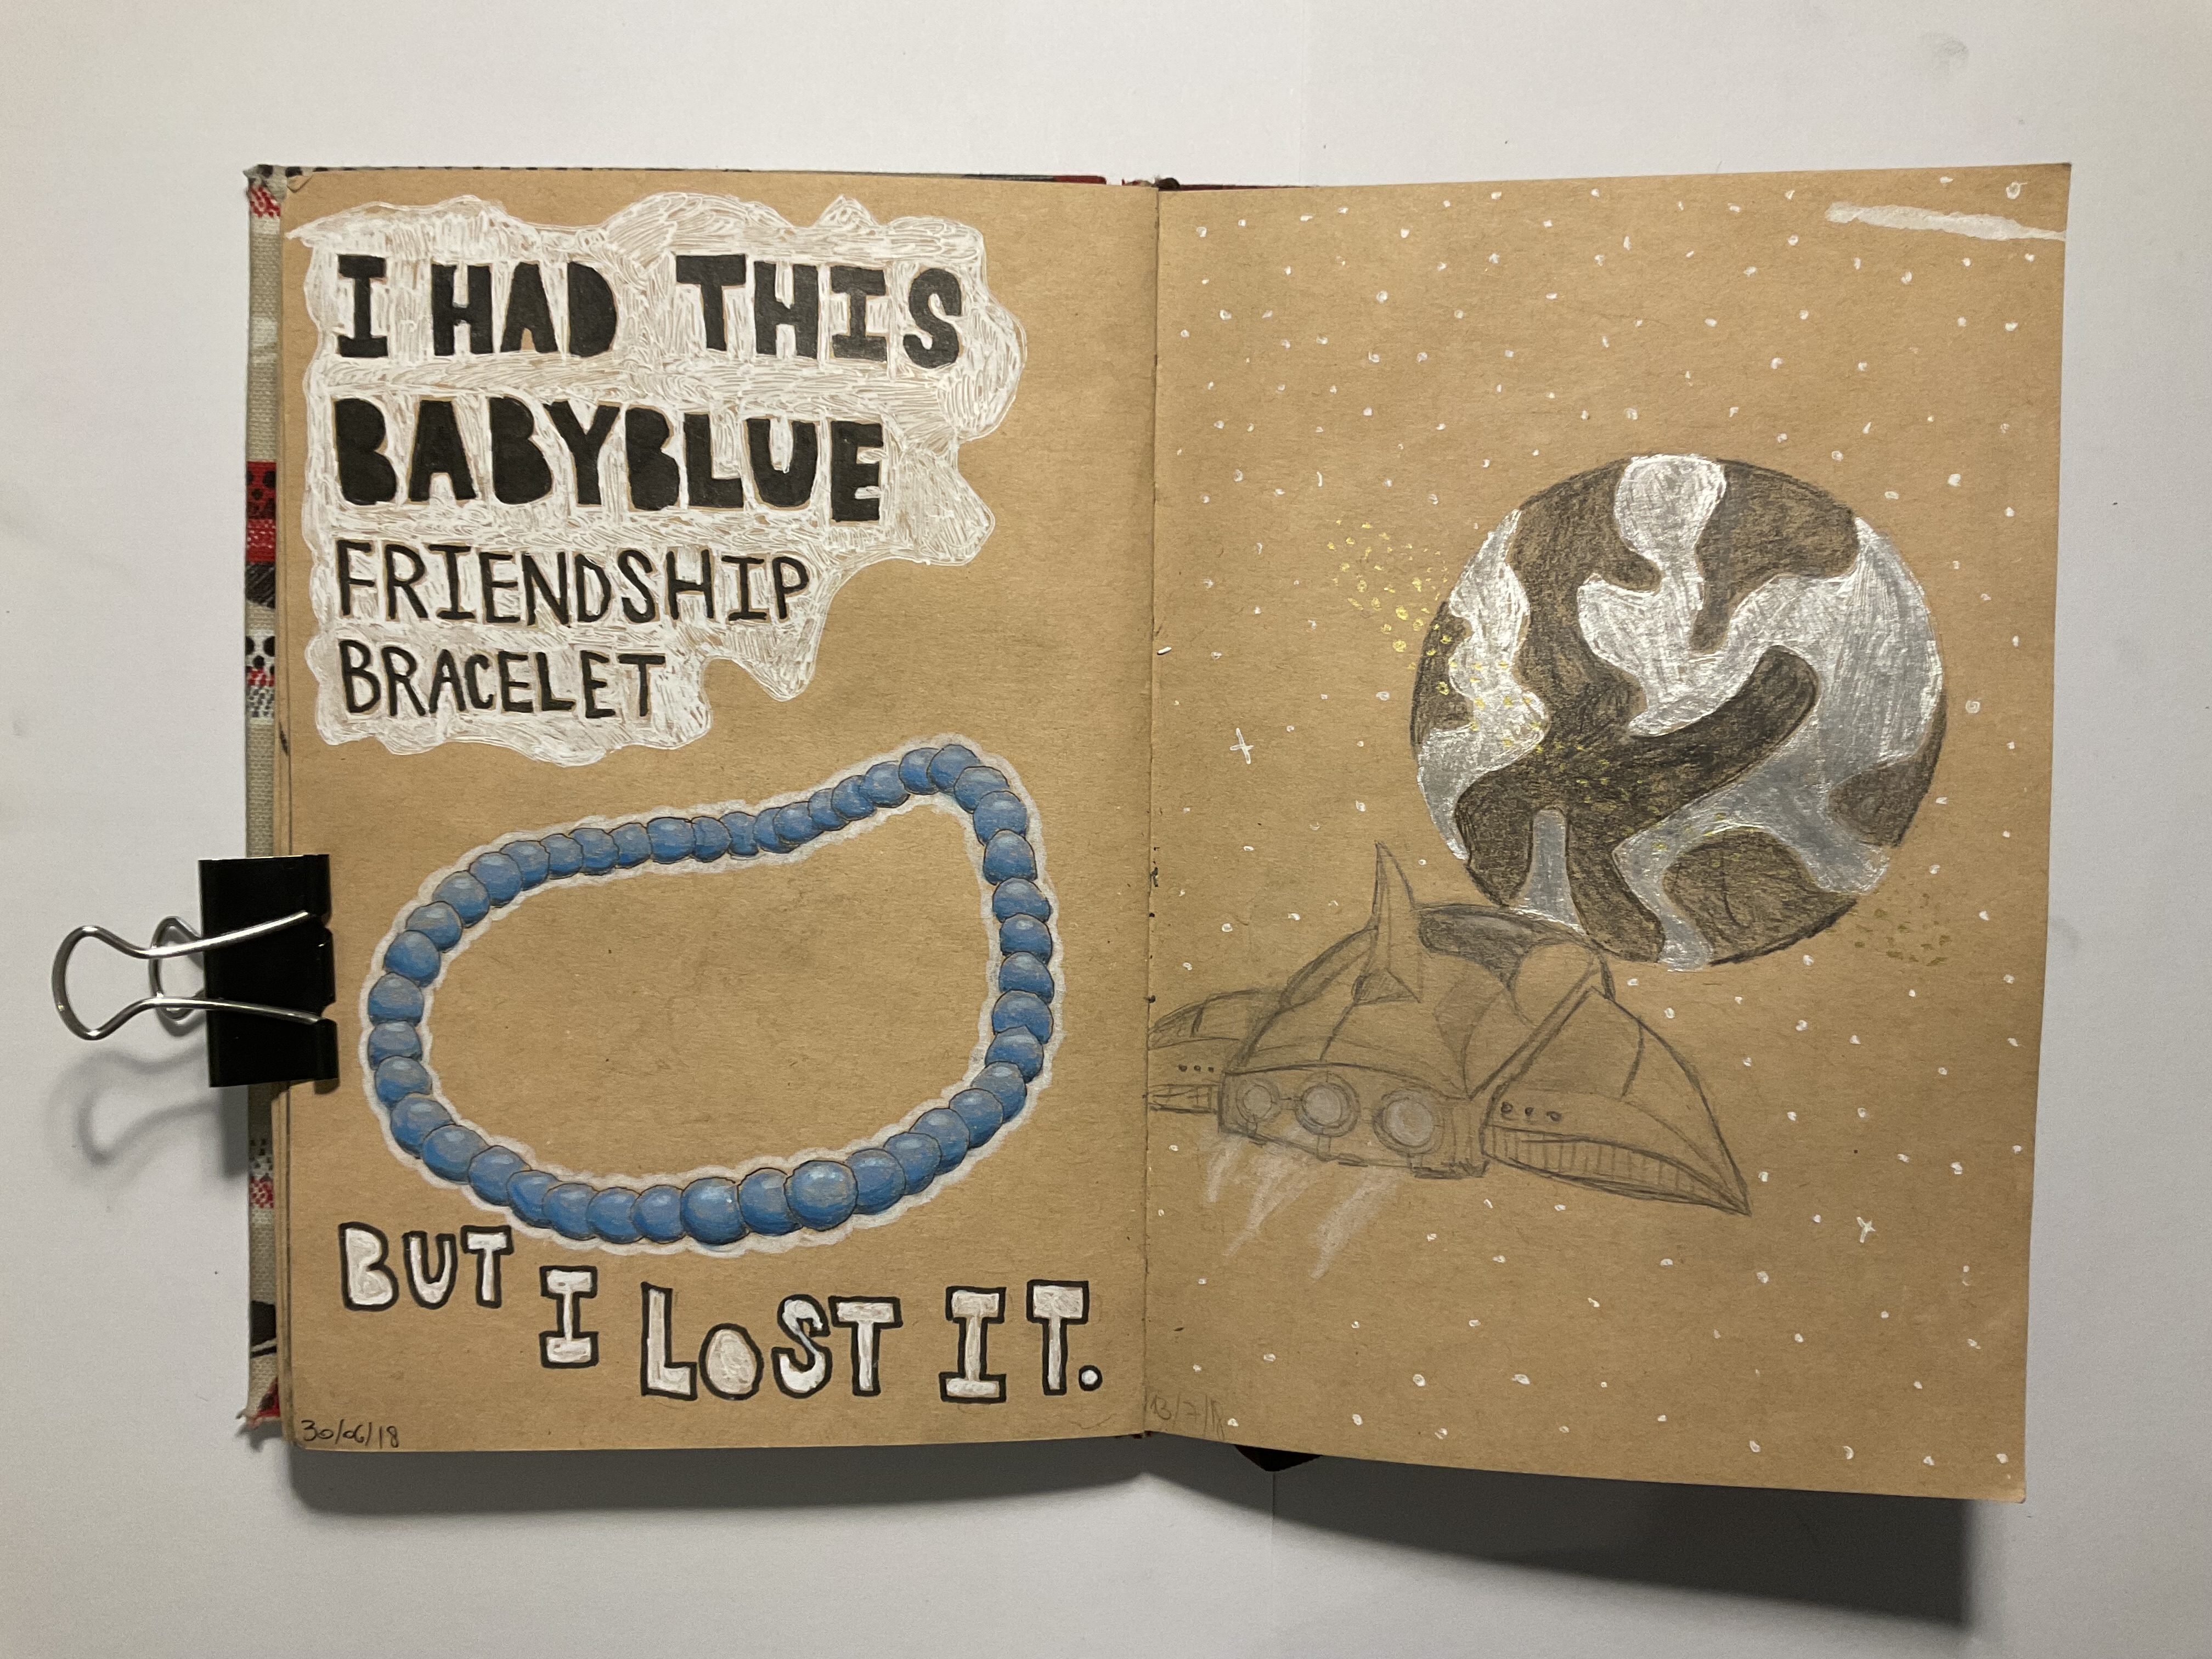 I HAD THIS
BABYBLUE
FRIENDSHIP
BRACELET
BUT I LOST IT.
30/06/18